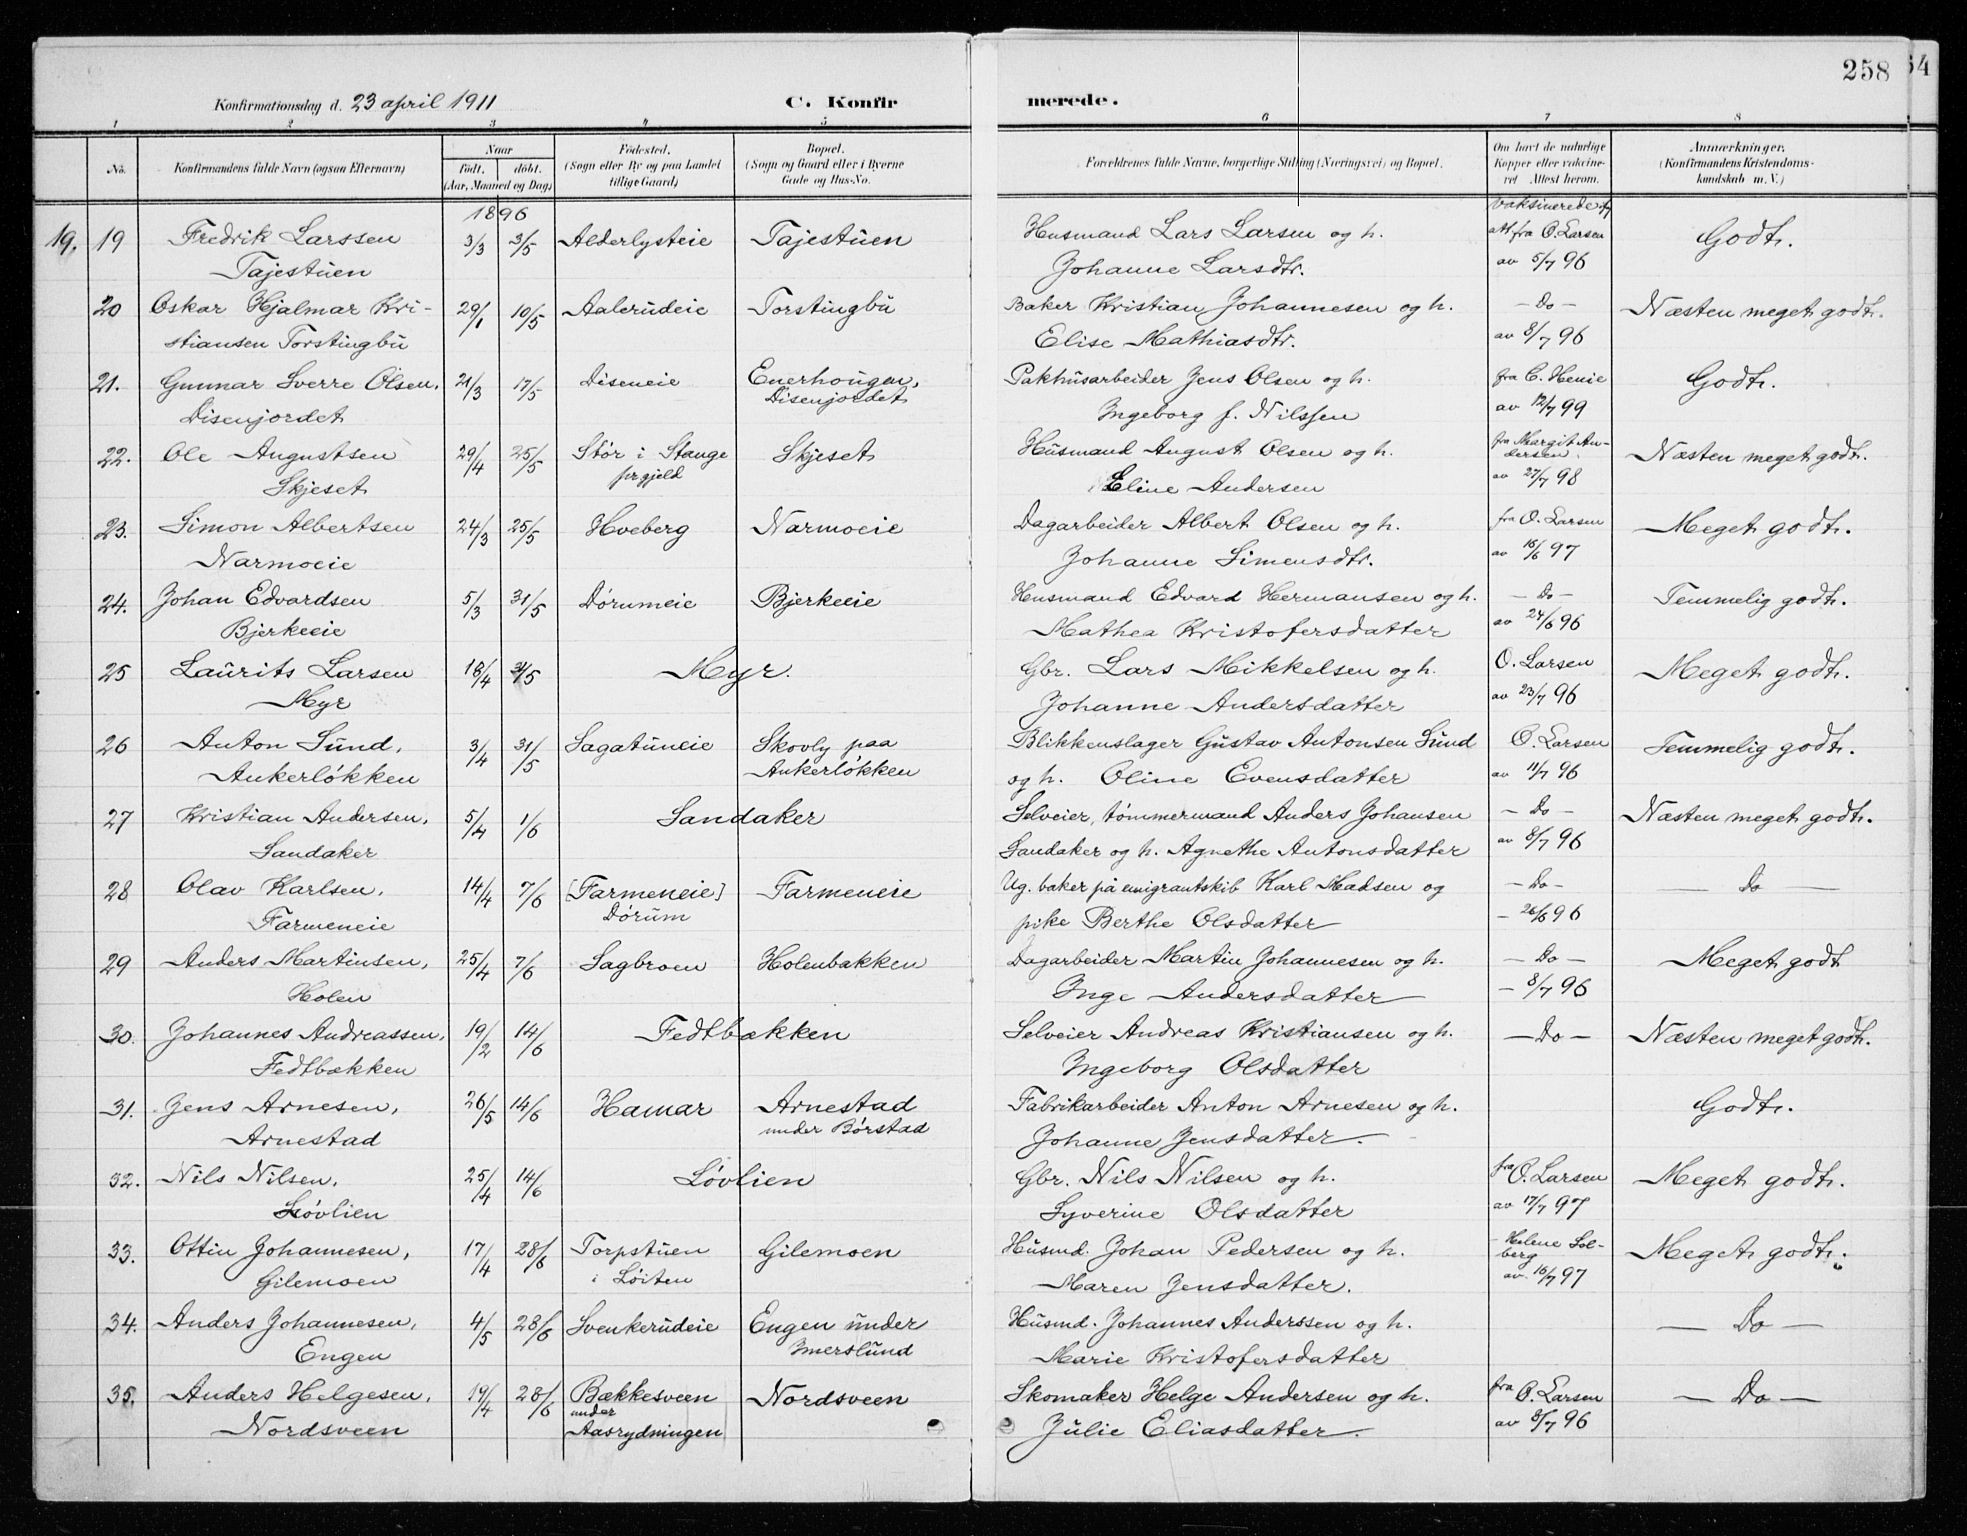 258
54
Konfirmationsdag d. 23 april 1911
C. Konfir
merede.
1 2 3 4 5 6 7 8
No.
Konfirmandens fulde Navn (ogsaa Efternavn)
Naar
født. døbt.
(Aar, Maaned og Dag)
Fødested.
(Sogn eller By og paa Landet
tillige Gaard)
Bopæl.
(Sogn og Gaard eller i Byerne
Gade og Hus-No.
Forældrenes fulde Navne, borgerlige Stilling (Næringsvei) og Bopæl.
Om havt de naturlige
Kopper eller vakcine-
ret Attest herom.
Anmærkninger.
(Konfirmandens Kristendoms-
kundskab m. V.)
1896
19. 19 Fredrik Larssen 3/3 3/5 Alderlysteie Tajestuen Husmand Lars Larsen og h. vaksinerede if. att fra O. Larsen Godt.
Tajestuen Johanne Larsdtr. av 5/7 96
20 Oskar Hjalmar Kri- 29/1 10/5 Aalerudeie Torstingbu Baker Kristian Johannesen og h. — Do — Næsten meget godt.
stiansen Torstingbu Elise Mathiasdtr. av 8/7 96
21. Gunnar Sverre Olsen, 21/3 17/5 Diseneie Enerhougen, Pakhusarbeider Jens Olsen og h. fra C. Henie Godt.
Disenjordet Disenjordet Ingeborg f. Nilssen av 12/7 99
22. Ole Augustsen 29/4 25/5 Stór i Stange Skjeset Husmand August Olsen og h. fra Margit An- Næsten meget godt.
Skjeset prgjeld Eline Andersen dersen. av 27/7 98
23. Simon Albertsen 24/3 25/5 Hveberg Narmoeie Dagarbeider Albert Olsen og h. fra O. Larsen Meget godt.
Narmoeie Johanne Simensdtr. av 16/6 97
24. Johan Edvardsen 5/3 31/5 Dórumeie Bjerkeeie Husmand Edvard Hermansen og h. — Do — Temmelig godt.
Bjerkeeie Mathea Kristofersdatter av 24/6 96
25 Laurits Larsen 18/4 31/5 Myr. Gbr. Lars Mikkelsen og h. O. Larsen Meget godt.
Myr Johanne Andersdatter av 23/7 96
26 Anton Sund, 3/4 31/5 Sagatuneie Skovly paa Blikkenslager Gustav Antonsen Sund O. Larsen Temmelig godt.
Ankerlókken Ankerlókken og h. Oline Evensdatter av 11/7 96
27 Kristian Andersen, 5/4 1/6 Sandaker Selveier, tómmermand Anders Johansen — Do — Næsten meget godt.
Sandaker Sandaker og h. Agnethe Antonsdatter av 8/7 96
28 Olav Karlsen, 14/4 7/6 [Farmeneie] Farmeneie Ug. baker på emigrantskib Karl Madsen og — Do — — Do —
Farmeneie Dórum pike Berthe Olsdatter — 26/6 96
29 Anders Martinsen, 25/4 7/6 Sagbroen Holenbakken Dagarbeider Martin Johannesen og h. — Do — Meget godt
Holen Inge Andersdatter — 8/7 96
30. Johannes Andreassen, 19/2 14/6 Fedtbækken Selveier Andreas Kristiansen og h. — Do — Næsten meget godt.
Fedtbækken Ingeborg Olsdatter
31. Jens Arnesen, 26/5 14/6 Hamar Arnestad Fabrikarbeider Anton Arnesen og h. Godt.
Arnestad under Bórstad Johanne Jensdatter.
32. Nils Nilsen, 25/4 14/6 Lóvlien Gbr. Nils Nilsen og h. fra O. Larsen Meget godt.
Lóvlien Syverine Olsdatter av 17/7 97
33. Ottin Johannesen, 17/4 28/6 Torpstuen Gilemoen Husmd. Johan Pedersen og h. Helene Sol- Meget godt.
Gilemoen i Lóiten Maren Jensdatter. berg av. 16/7 97
34. Anders Johannesen, 4/5 28/6 Svenkerudeie Engen under Husmd. Johannes Anderssen og h. — Do —
Engen Imerslund Marie Kristofersdatter
35. Anders Helgesen, 19/4 28/6 Bækkesveen Nordsveen Skomaker Helge Andersen og h. fra O. Larsen — Do —
Nordsveen under Aasrydningen Julie Eliasdatter. av 8/7 96